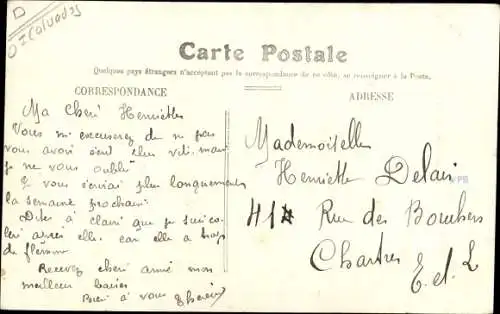 D
Calvados
Carte Postale
Quelques pays étrangers n'acceptant pas la correspondance de ce côté, se renseigner à la Poste.
CORRESPONDANCE
ADRESSE
Ma cheri Henriette
Vous m'excuserez de ne pas
vous avoir écrit plus
je ne vous oublie
vous écrirai plus longuement
la semaine prochaine
Dites à clair que je suis
elle car elle a trop
de flemme
Recevez cheri amie mon
meilleur baiser
à vous
Mademoiselle
Henriette Delain
41 Rue des Bouchers
Chartres
E et L